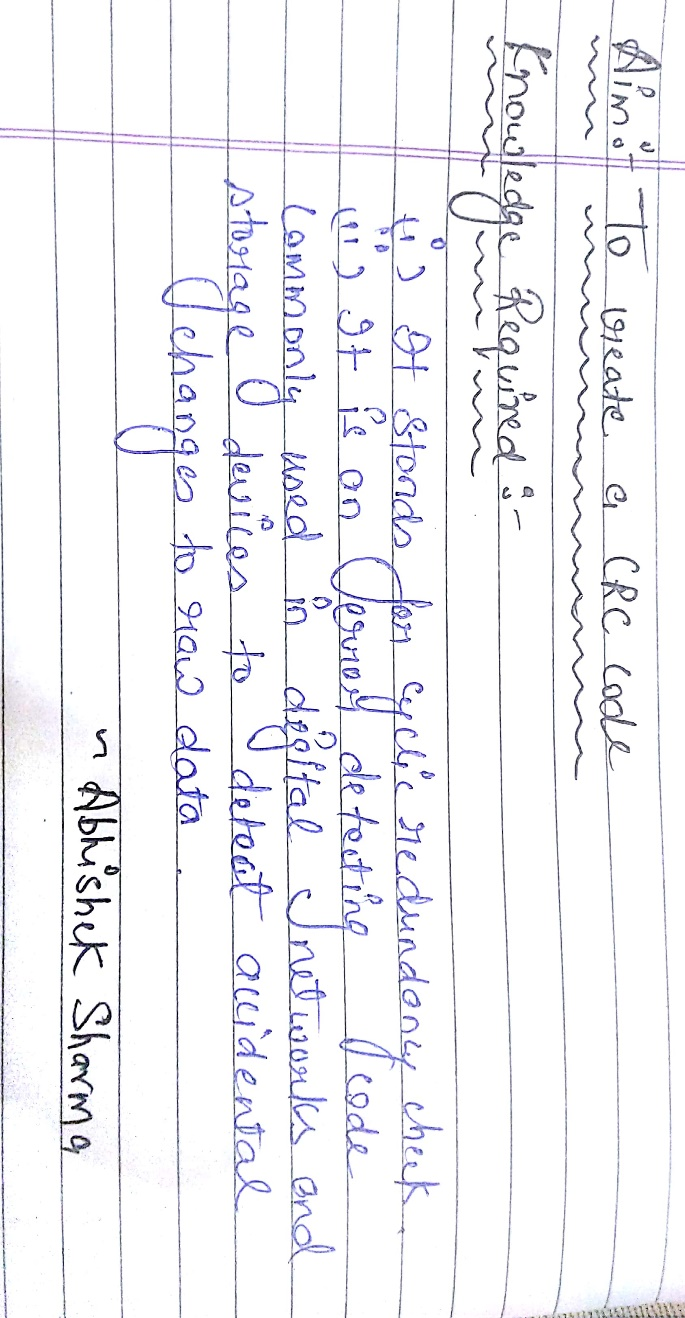 Aim :- To create a CRC code
Knowledge Required :-
(i) It stands for cyclic redundancy check.
(ii) It is an error detecting code
commonly used in digital networks and
storage devices to detect accidental
changes to raw data.
~ Abhishek Sharma